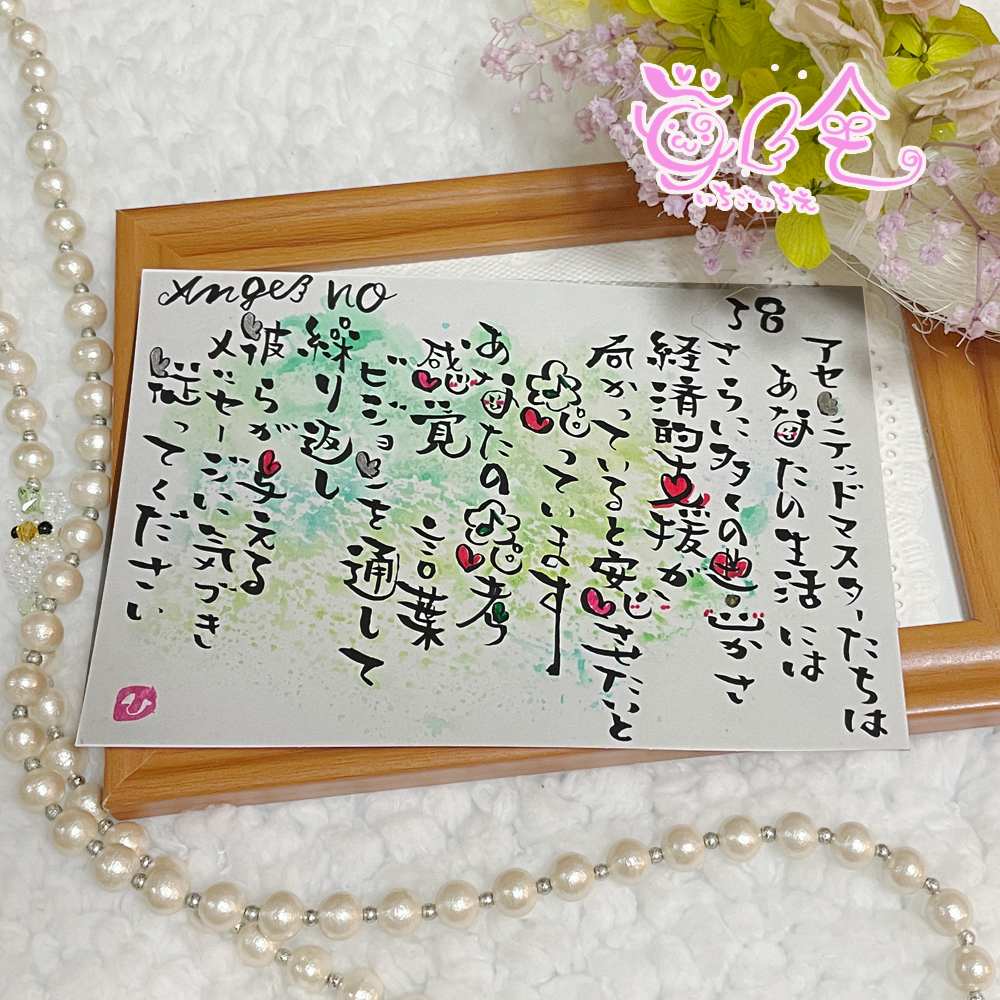 Angel no
38
アセンデッドマスターたちは
あなたの生活には
さらに多くの豊かさ
経済的支援が
向かっていると安心させたいと
思っています
あなたの思考
感覚 言葉
ビジョンを通して
繰り返し
彼らが与える
メッセージに気づき
従ってください
いちごいちえ